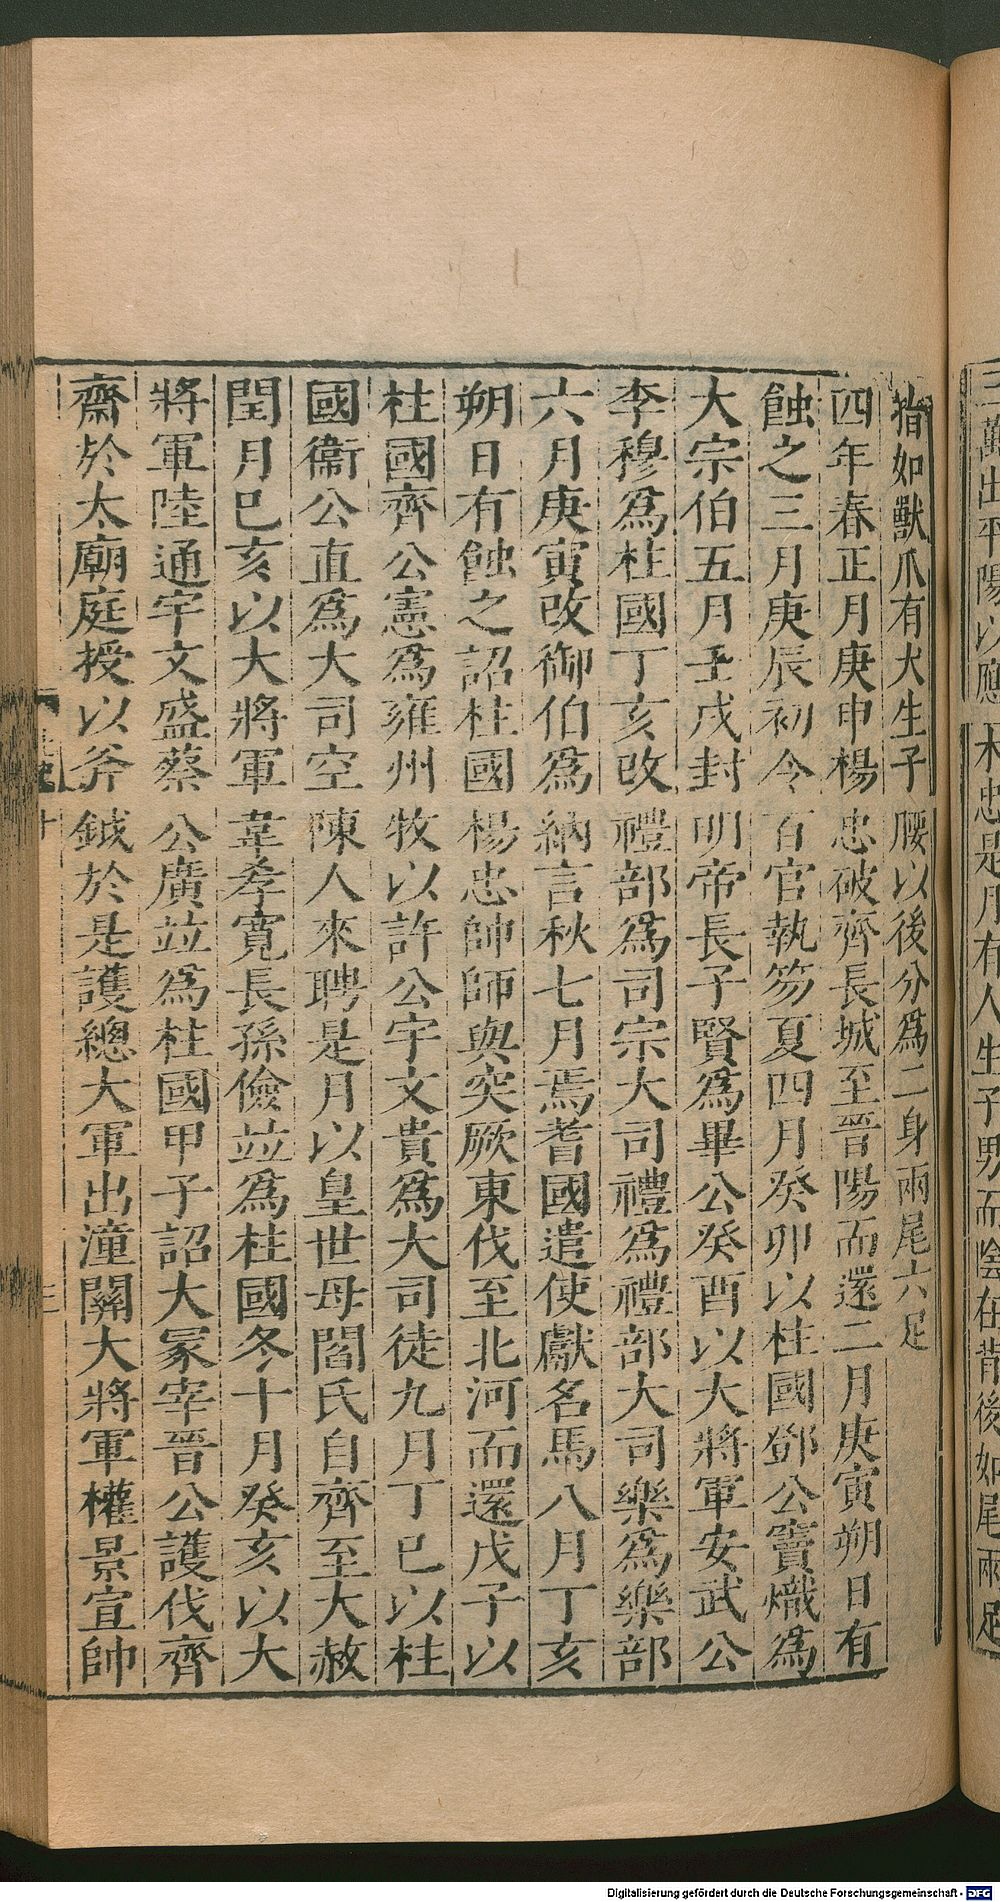 三萬出平陽以應楊忠是月有人生子男而陰在背後如尾兩足
指如獸爪有犬生子腰以後分為二身兩尾六足
四年春正月庚申楊忠破齊長城至晉陽而還二月庚寅朔日有
蝕之三月庚辰初令百官執笏夏四月癸卯以柱國鄧公竇熾為
大宗伯五月壬戌封明帝長子賢為畢公癸酉以大將軍安武公
李穆為柱國丁亥改禮部為司宗大司禮為禮部大司樂為樂部
六月庚寅改御伯為納言秋七月焉耆國遣使獻名馬八月丁亥
朔日有蝕之詔柱國楊忠帥師與突厥東伐至北河而還戊子以
柱國齊公憲為雍州牧以許公宇文貴為大司徒九月丁巳以柱
國衞公直為大司空陳人來聘是月以皇世母閻氏自齊至大赦
閏月巳亥以大將軍韋孝寬長孫儉竝為柱國冬十月癸亥以大
將軍陸通宇文盛蔡公廣竝為柱國甲子詔大冢宰晉公護伐齊
齋於太廟庭授以斧鉞於是護總大軍出潼關大將軍權景宣帥
Digitalisierung gefördert durch die Deutsche Forschungsgemeinschaft - DFG